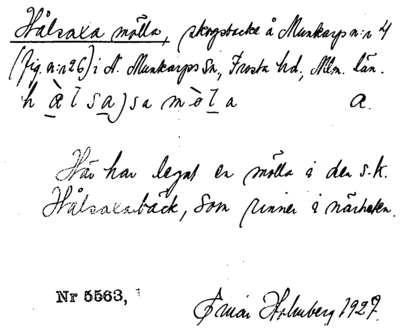 Hålsaxa mölla, skogsbacke å Munkarp n:r 4
(fig. n:r 26) i N. Munkarps Sn, Frosta hd, Mlm. län.
h æ l s a) s a m ö l a a.
Här har legat en mölla i den s.k.
Hålsaxabäck, som rinner i närheten.
Nr 5563,
Einar Holmberg 1927.